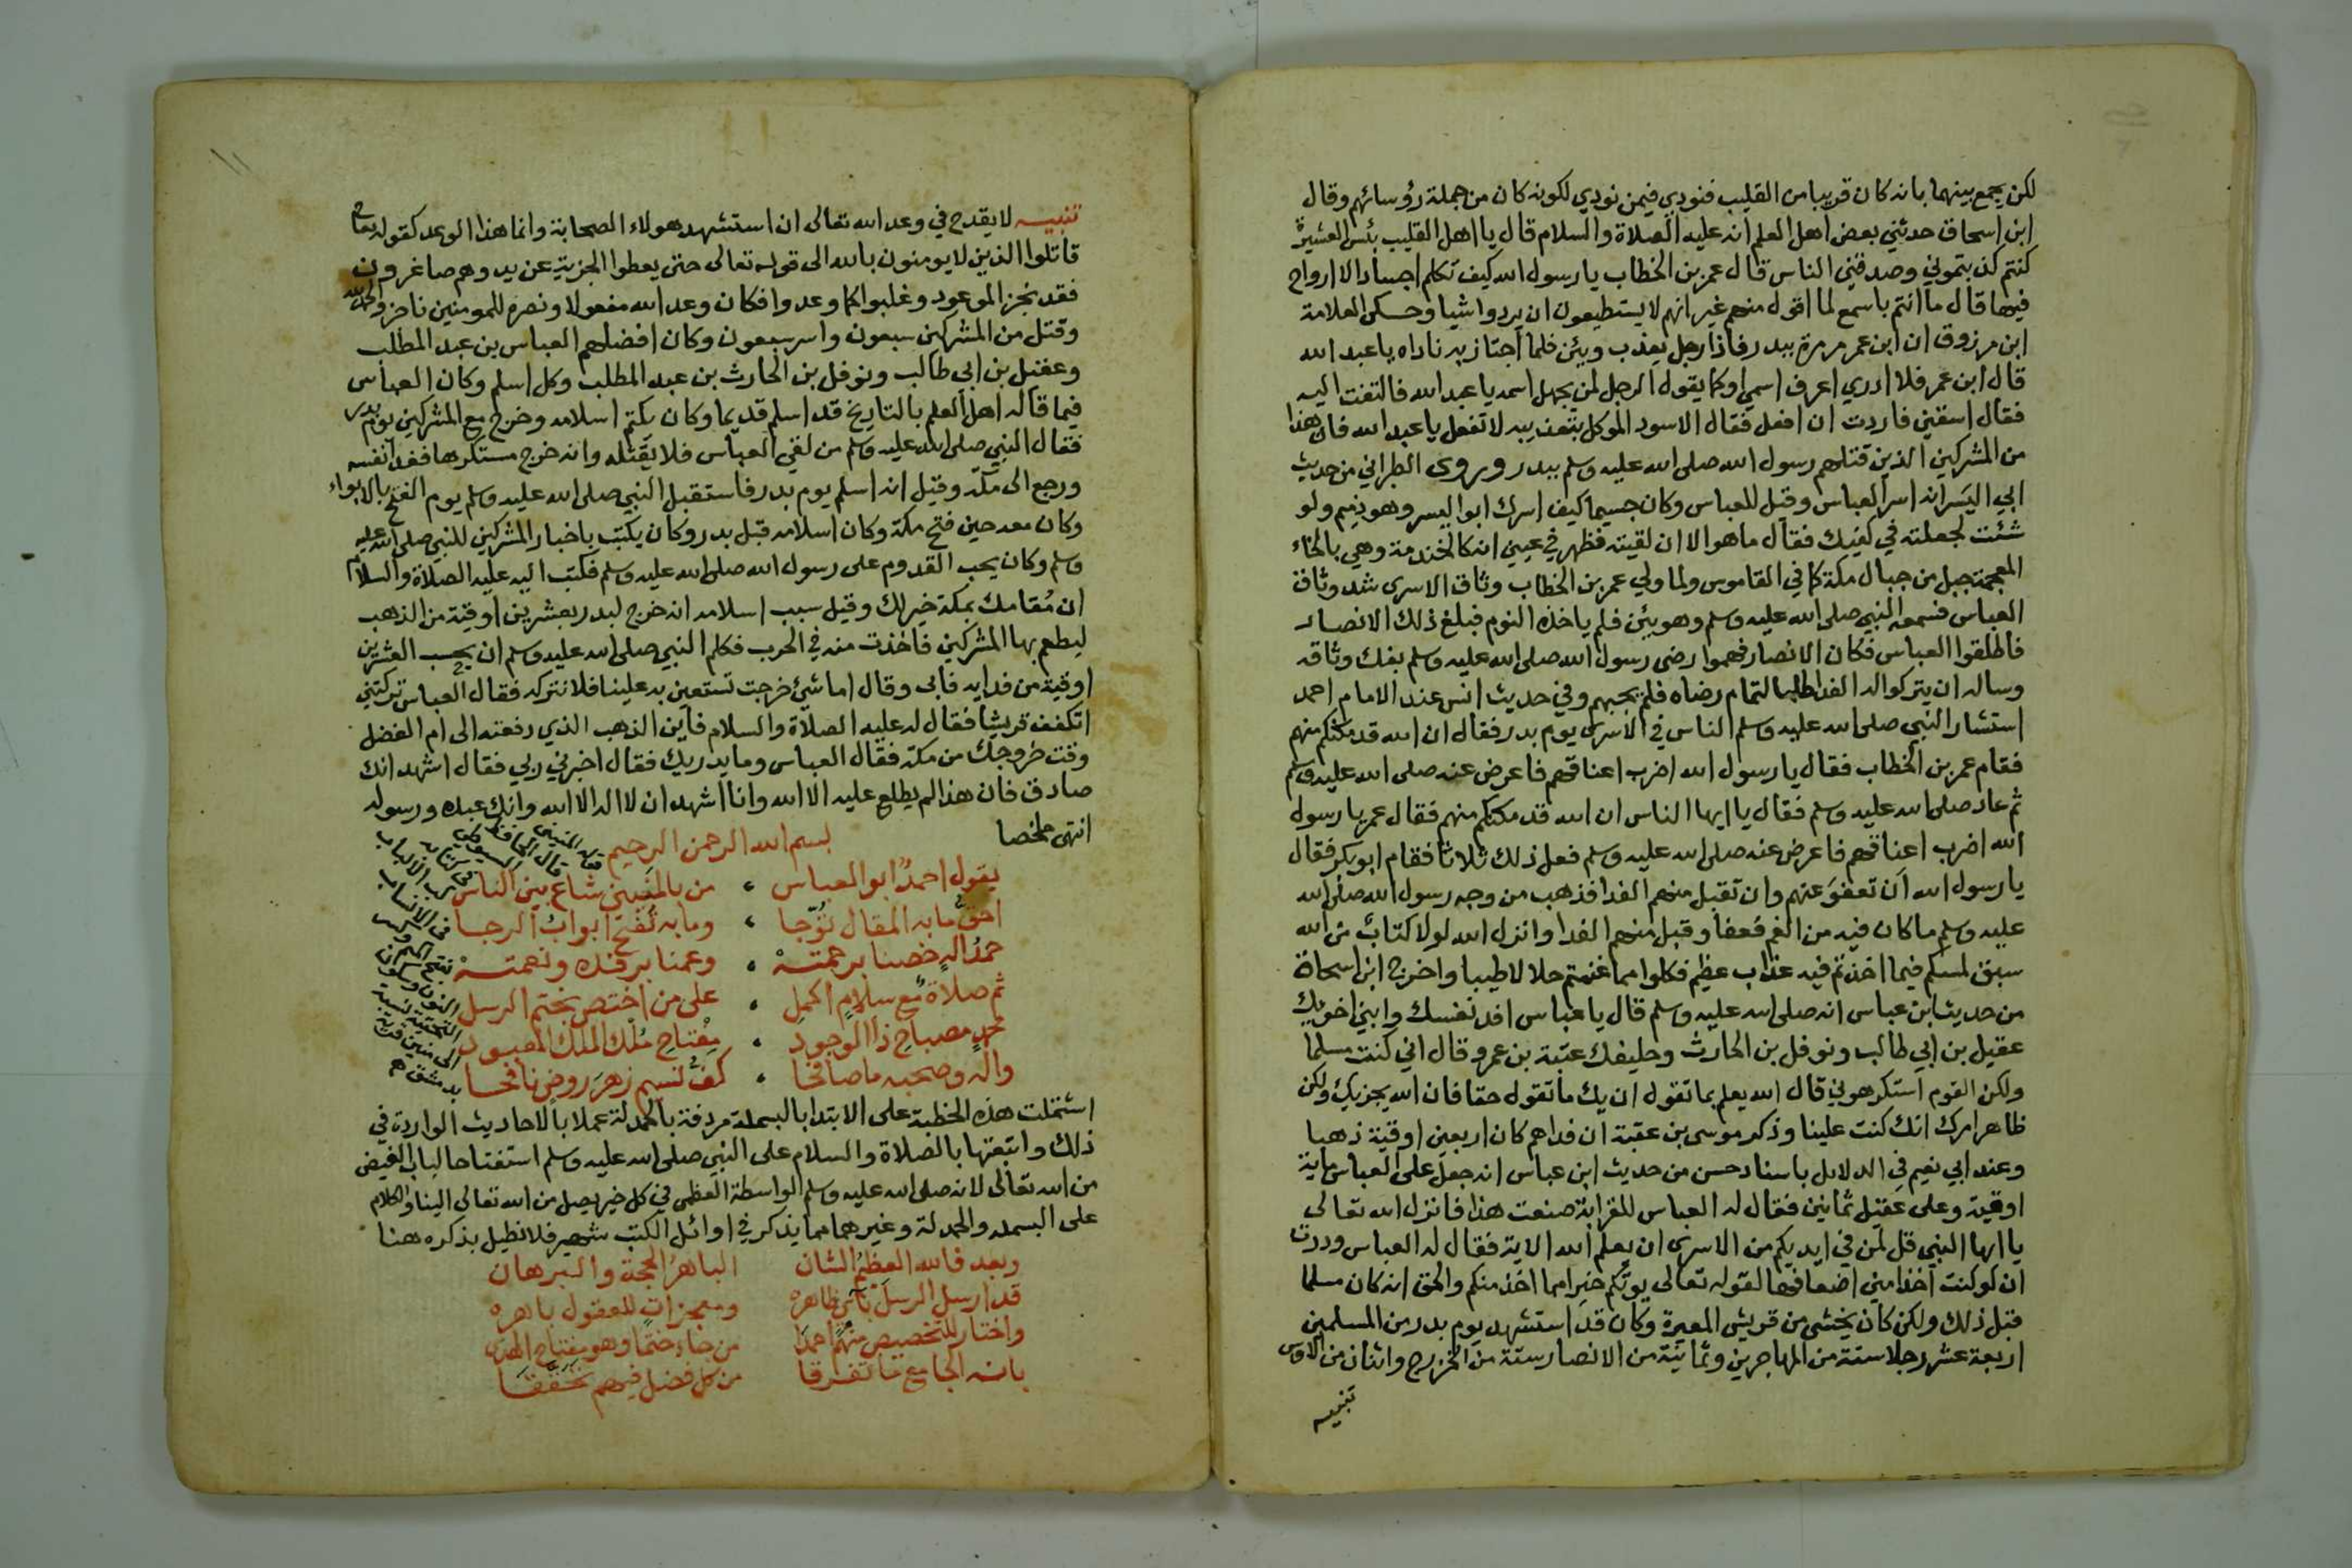 لكن يجمع بينهما بانه كان قريبا من القليب فنودي فيمن نودي لكونه كان من جملة رؤسائهم وقال
ابن اسحاق حدثني بعض اهل العلم انه عليه الصلاة والسلام قال يا اهل القليب بئس العشيرة
كنتم كذبتموني وصدقني الناس قال عمر بن الخطاب يا رسول الله كيف تكلم اجسادا لا ارواح
فيها قال ما انتم باسمع لما اقول منهم غير انهم لا يستطيعون ان يردوا شيا وحكى العلامة
ابن مرزوق ان ابن عمر مر مرة ببدر فاذا رجل يعذب ويئن فلما اجتاز به ناداه يا عبد الله
قال ابن عمر فلا ادري اعرف اسمي او كما يقول الرجل لمن يجهل اسمه يا عبد الله فالتفت اليه
فقال اسقني فاردت ان افعل فقال الاسود الموكل بتعذيبه لا تفعل يا عبد الله فان هذا
من المشركين الذين قتلهم رسول الله صلى الله عليه وسلم ببدر وروى الطبراني من حديث
ابي اليسر انه اسر العباس وقيل للعباس وكان جسيما كيف اسرك ابو اليسر وهو ذميم ولو
شئت لجعلته في كفيك فقال ما هو الا ان لقيته فظهر في عيني انه كالخندمة وهي بالخاء
المعجمة جبل من جبال مكة كما في القاموس ولما ولي عمر بن الخطاب وثاق الاسرى شد وثاق
العباس فسمعه النبي صلى الله عليه وسلم وهو يئن فلم ياخذه النوم فبلغ ذلك الانصار
فاطلقوا العباس فكان الانصار فهموا رضى رسول الله صلى الله عليه وسلم بفك وثاقه
وساله ان يتركوا له الفدا طلبا لتمام رضاه فلم يجبهم وفي حديث انس عند الامام احمد
استشار النبي صلى الله عليه وسلم الناس في الاسرى يوم بدر فقال ان الله قد مكنكم منهم
فقام عمر بن الخطاب فقال يا رسول الله اضرب اعناقهم فاعرض عنه صلى الله عليه وسلم
ثم عاد صلى الله عليه وسلم فقال يا ايها الناس ان الله قد مكنكم منهم فقال عمر يا رسول
الله اضرب اعناقهم فاعرض عنه صلى الله عليه وسلم فعل ذلك ثلاثا فقام ابو بكر فقال
يا رسول الله ان تعفو عنهم وان تقبل منهم الفدا فذهب من وجه رسول الله صلى الله
عليه وسلم ما كان فيه من الغم فعفا وقبل منهم الفدا وانزل الله لولا كتاب من الله
سبق لمسكم فيما اخذتم فيه عذاب عظيم فكلوا مما غنمتم حلالا طيبا واخرج ابن اسحاق
من حديث ابن عباس انه صلى الله عليه وسلم قال يا عباس افد نفسك وابني اخويك
عقيل بن ابي طالب ونوفل بن الحارث وحليفك عتبة بن عمرو قال اني كنت مسلما
ولكن القوم استكرهوني قال الله يعلم بما تقول ان يك ما تقول حقا فان الله يجزيك ولكن
ظاهر امرك انك كنت علينا وذكر موسى بن عقبة ان فداهم كان اربعين اوقية ذهبا
وعند ابي نعيم في الدلائل باسناد حسن من حديث ابن عباس انه جعل على العباس ماية
اوقية وعلى عقيل ثمانين فقال له العباس للقرابة صنعت هذا فانزل الله تعالى
يا ايها النبي قل لمن في ايديكم من الاسرى ان يعلم الله الاية فقال له العباس وددت
ان لو كنت اخذ مني اضعافها لقوله تعالى يوتكم خيرا مما اخذ منكم والحق انه كان مسلما
قبل ذلك ولكن كان يخشى من قريش المعيرة وكان قد استشهد يوم بدر من المسلمين
اربعة عشر رجلا ستة من المهاجرين وثمانية من الانصار ستة من الخزرج واثنان من الاوس
تنبيه
تنبيه لا يقدح في وعد الله تعالى ان استشهد هولاء الصحابة وانما هذا الوعد كقوله تعالى
قاتلوا الذين لا يومنون بالله الى قوله تعالى حتى يعطوا الجزية عن يد وهم صاغرون
فقد نجز الموعود وغلبوا كما وعدوا فكان وعد الله مفعولا ونصره للمومنين ناجزا والحمد لله
وقتل من المشركين سبعون واسر سبعون وكان افضلهم العباس بن عبد المطلب
وعقيل بن ابي طالب ونوفل بن الحارث بن عبد المطلب وكل اسلم وكان العباس
فيما قاله اهل العلم بالتاريخ قد اسلم قديما وكان يكتم اسلامه وخرج مع المشركين يوم بدر
فقال النبي صلى الله عليه وسلم من لقي العباس فلا يقتله وانه خرج مستكرها ففدا نفسه
ورجع الى مكة وقيل انه اسلم يوم بدر فاستقبل النبي صلى الله عليه وسلم يوم الفتح بالابواء
وكان معه حين فتح مكة وكان اسلامه قبل بدر وكان يكتب باخبار المشركين للنبي صلى الله عليه
وسلم وكان يحب القدوم على رسول الله صلى الله عليه وسلم فكتب اليه عليه الصلاة والسلام
ان مقامك بمكة خير لك وقيل سبب اسلامه انه خرج لبدر بعشرين اوقية من الذهب
ليطعم بها المشركين فاخذت منه في الحرب فكلم النبي صلى الله عليه وسلم ان يحسب العشرين
اوقية من فدايه فابى وقال اما شئ خرجت تستعين به علينا فلا نتركه فقال العباس تركتني
اتكفف قريشا فقال له عليه الصلاة والسلام فاين الذهب الذي دفعته الى ام الفضل
وقت خروجك من مكة فقال العباس وما يدريك فقال اخبرني ربي فقال اشهد انك
صادق فان هذا لم يطلع عليه الا الله وانا اشهد ان لا اله الا الله وانك عبده ورسوله
انتهى ملخصا
بسم الله الرحمن الرحيم
يقول احمد ابو العباس ، من بالمنيني شاع بين الناس
احق ما به المقال توجا ، وما به تفتح ابواب الرجا
حمد اله خصنا برحمته ، وعمنا برفده ونعمته
ثم صلاة مع سلام اكمل ، على من اختص بختم الرسل
محمد مصباح ذا الوجود ، مفتاح ملك الملك المعبود
واله وصحبه ما صافحا ، كف نسيم زهر روض نافحا
قوله المنيني
قال الحافظ
السيوطي
في كتابه
لب الالباب
في الانساب
بفتح الميم وكسر
النون وسكون
التحتية نسبة
الى منين قرية
بدمشق هـ
اشتملت هذه الخطبة على الابتدا بالبسملة مردفة بالحمدلة عملا بالاحاديث الواردة في
ذلك واتبعتها بالصلاة والسلام على النبي صلى الله عليه وسلم استفتاحا لباب الفيض
من الله تعالى لانه صلى الله عليه وسلم الواسطة العظمى في كل خير يصل من الله تعالى الينا والكلام
على البسملة والحمدلة وغيرهما مما يذكر في اوائل الكتب شهير فلا نطيل بذكره هنا
وبعد فالله العظيم الشان الباهر الحجة والبرهان
قد ارسل الرسل باي ظاهره ومعجزات للعقول باهره
واختار للتخصيص منهم احمدا من جاء ختما وهو مفتاح الهدى
بانه الجامع ما تفرقا من كل فضل فيهم تحققا